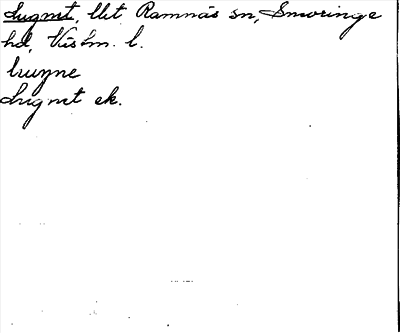 Lugnet, llt Ramnäs sn, Snevringe
hd, Västm. l.
luŋne
Lugnet ek.